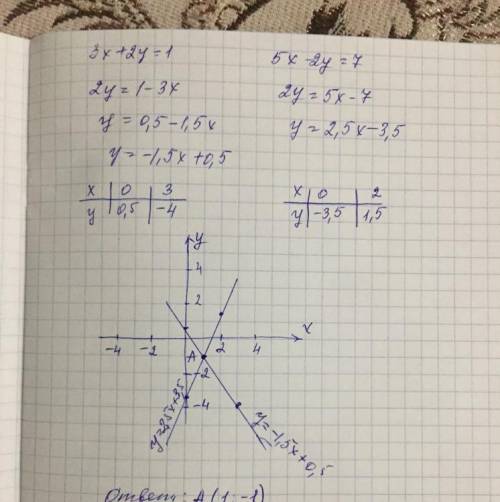 3x+2y=1
2y=1-3x
y=0,5-1,5x
y=-1,5x+0,5
x 0 3
y 0,5 -4
5x-2y=7
2y=5x-7
y=2,5x-3,5
x 0 2
y -3,5 1,5
y
4
2
x
-4 -2 2 4
A
-2
-4
y=2,5x+3,5
y=-1,5x+0,5
Ответ: A(1;-1)